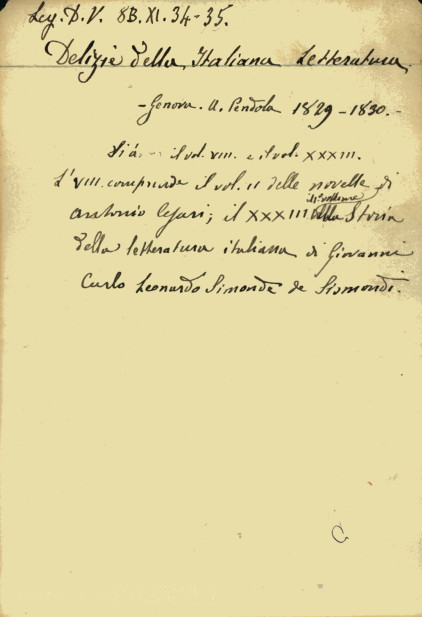 Leg. D. V. 8B. XI. 34-35.
Delizie della Italiana Letteratura.
- Genova. A. Pendola 1829 - 1830. -
il vol. VIII. e il vol. XXXIII.
L'VIII. comprende il vol. II delle novelle di
il 1° volume
Antonio Cesari; il XXXIII della Storia
della letteratura italiana di Giovanni
Carlo Leonardo Simonde de Sismondi.
C